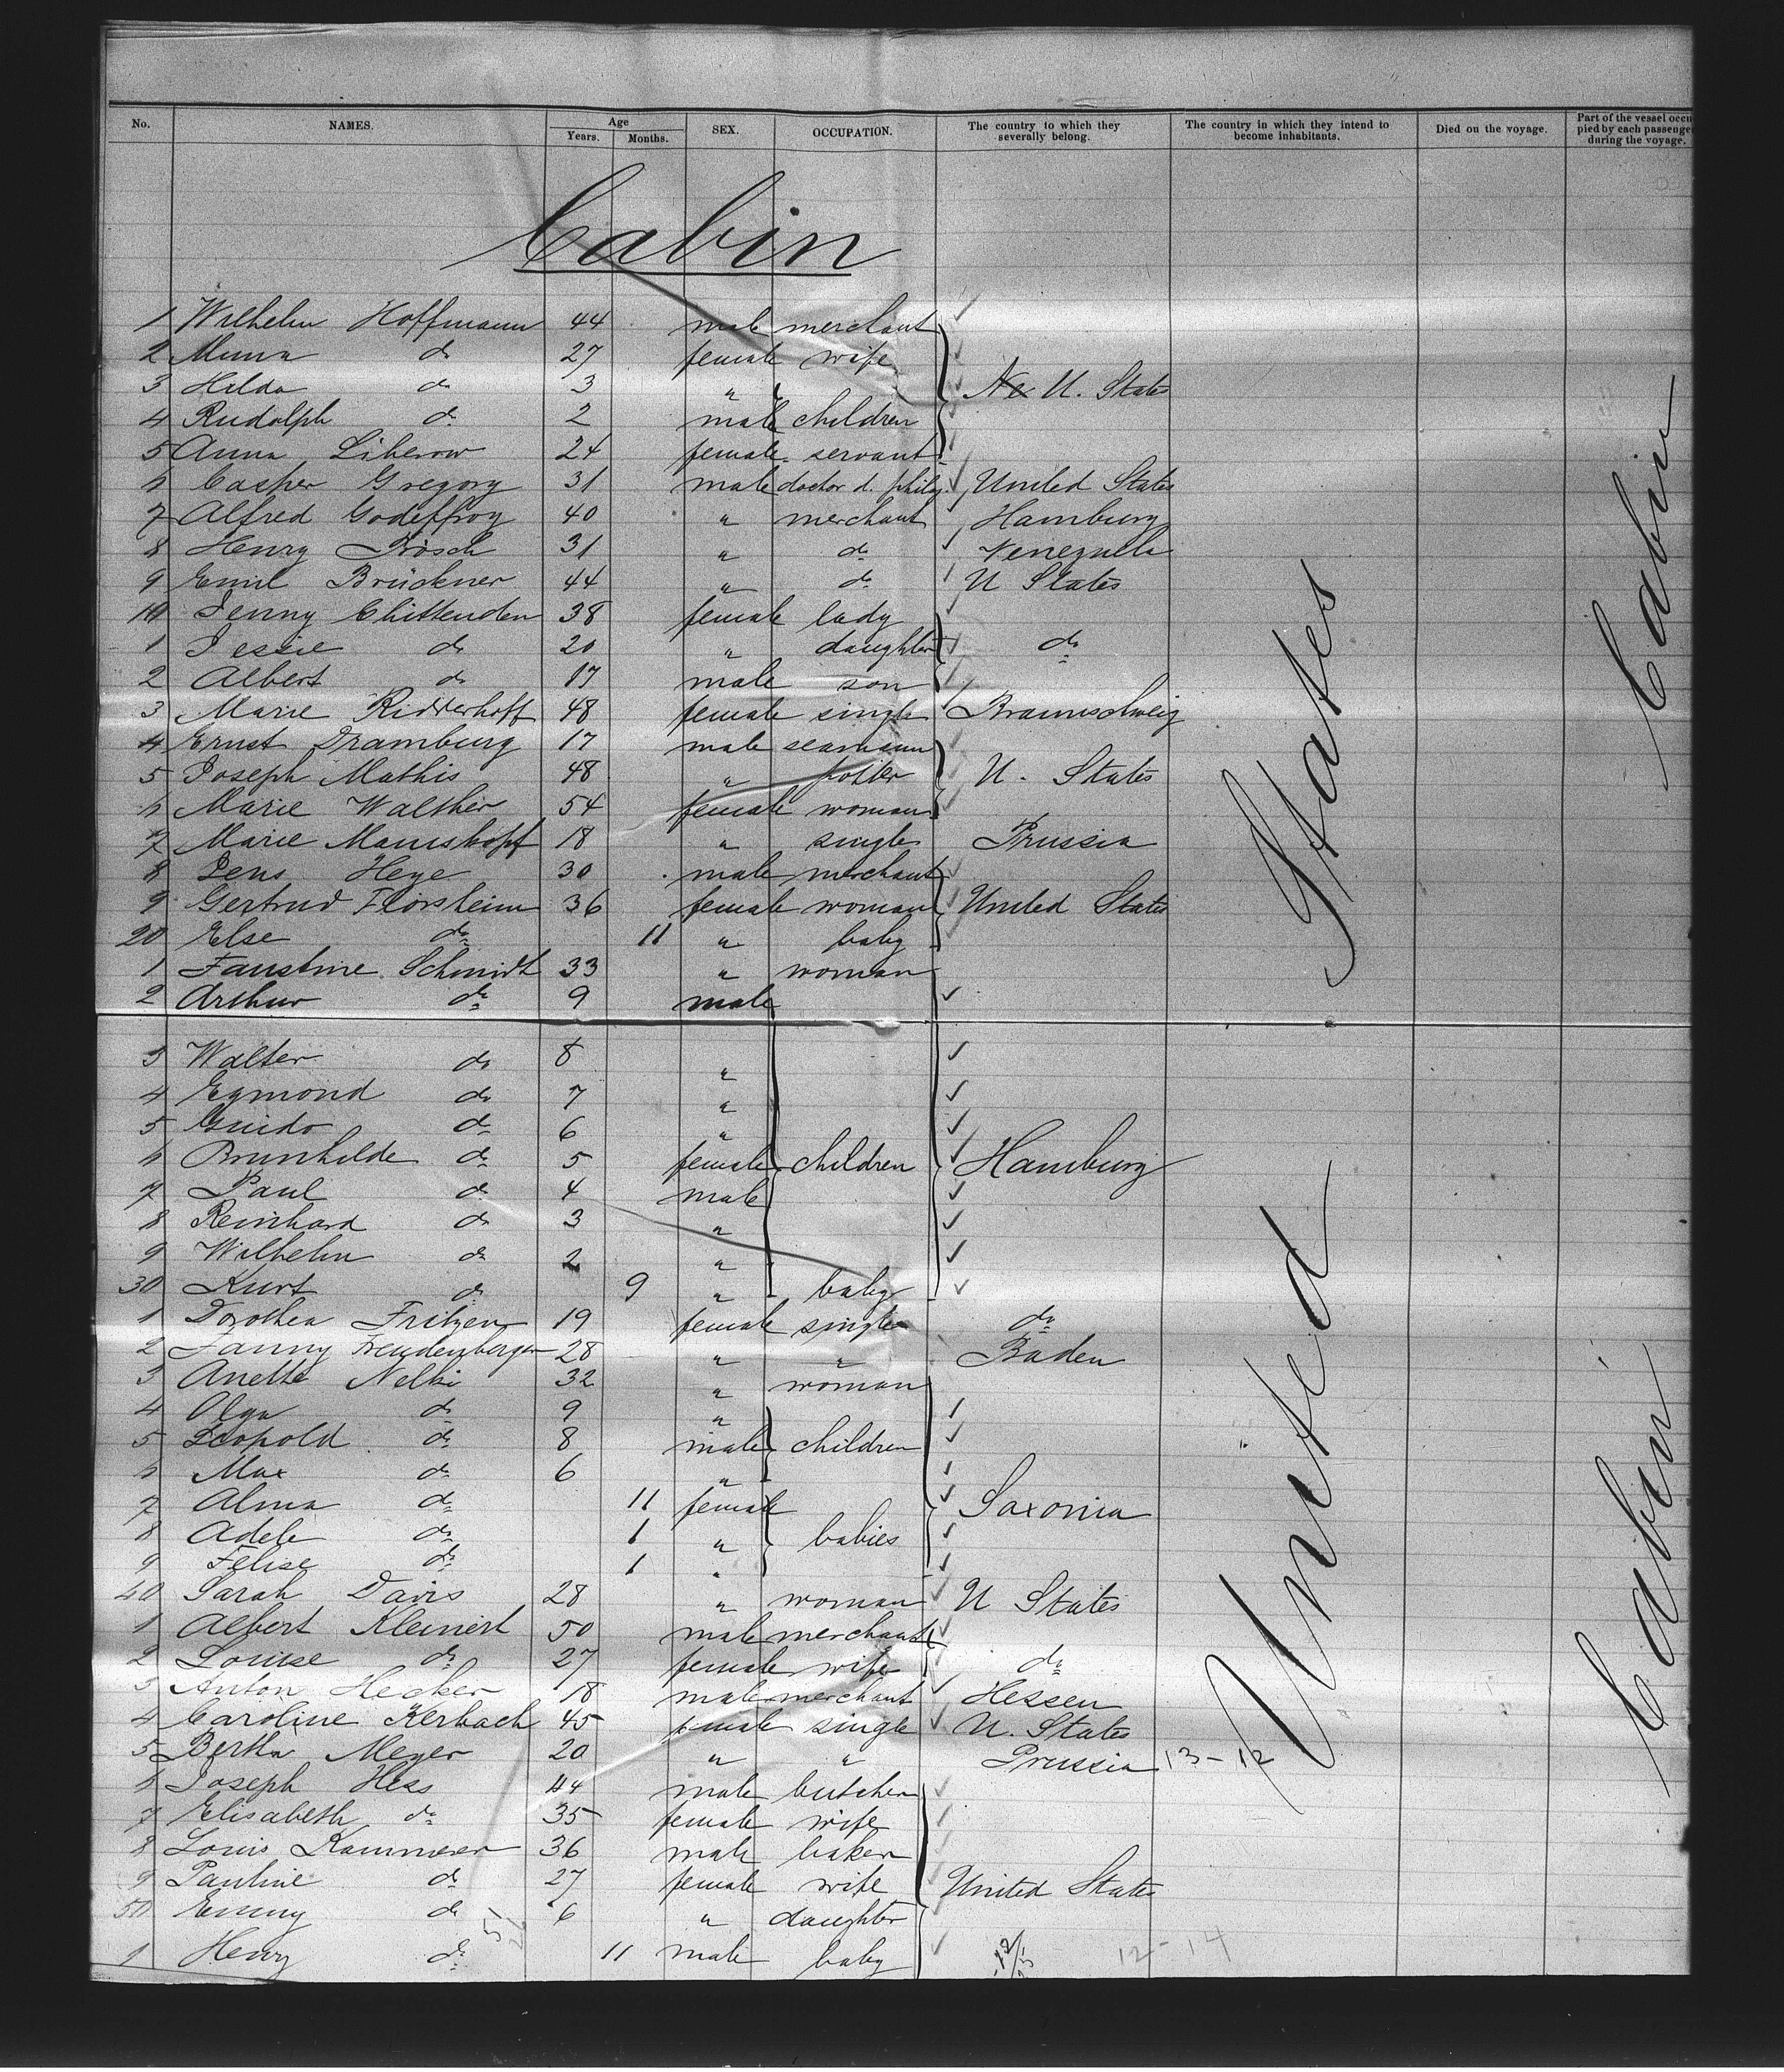 No. NAMES. Age Years. Months. SEX. OCCUPATION. The country to which they severally belong. The country in which they intend to become inhabitants. Died on the voyage. Part of the vessel occupied by each passenger during the voyage.
Cabin
1 Wilhelm Hoffmann 44 male merchant
2 Minna do 27 female wife
3 Hilda do 3 " U. States
4 Rudolph do 2 male children
5 Anna Liberow 24 female servant
6 Casper Gregory 31 male doctor d. philos. United States
7 Alfred Godeffroy 40 " merchant Hamburg
8 Henry Bösch 31 " do Venezuela
9 Emil Brückner 44 " do U States
10 Jenny Chittenden 38 female lady
1 Jessie do 20 " daughter do
2 Albert do 17 male son
3 Marie Ridderhoff 48 female single Braunschweig
4 Ernst Dramburg 17 male seamann
5 Joseph Mathis 48 " potter U. States
6 Marie Walther 54 female woman
7 Marie Manskopf 18 " single Prussia
8 Jens Heye 30 male merchant
9 Gertrud Florsheim 36 female woman United States
20 Else do 11 " baby
1 Faustine Schmidt 33 " woman
2 Arthur do 9 male
3 Walter do 8 "
4 Egmond do 7 "
5 Guido do 6 "
6 Brunhilde do 5 female children Hamburg
7 Paul do 4 male
8 Reinhard do 3 "
9 Wilhelm do 2 "
30 Kurt do 9 " baby
1 Dorothea Fritzen 19 female single do
2 Fanny Freudenberger 28 " " Baden
3 Anette Nelki 32 " woman
4 Olga do 9 "
5 Leopold do 8 male children
6 Max do 6 "
7 Alma do 11 female Saxonia
8 Adele do 1 " babies
9 Felise do 1 "
40 Sarah Davis 28 " woman U States
1 Albert Kleinert 50 male merchant
2 Louise do 27 female wife do
3 Anton Hecker 18 male merchant Hessen
4 Caroline Kerbach 45 female single U. States
5 Bertha Meyer 20 " " Prussia 13-12
6 Joseph Hess 44 male butcher
7 Elisabeth do 35 female wife
8 Louis Kammerer 36 male baker
9 Pauline do 27 female wife United States
50 Emmy do 6 " daughter
1 Henry do 11 male baby 12-14
United States
Cabin
Cabin